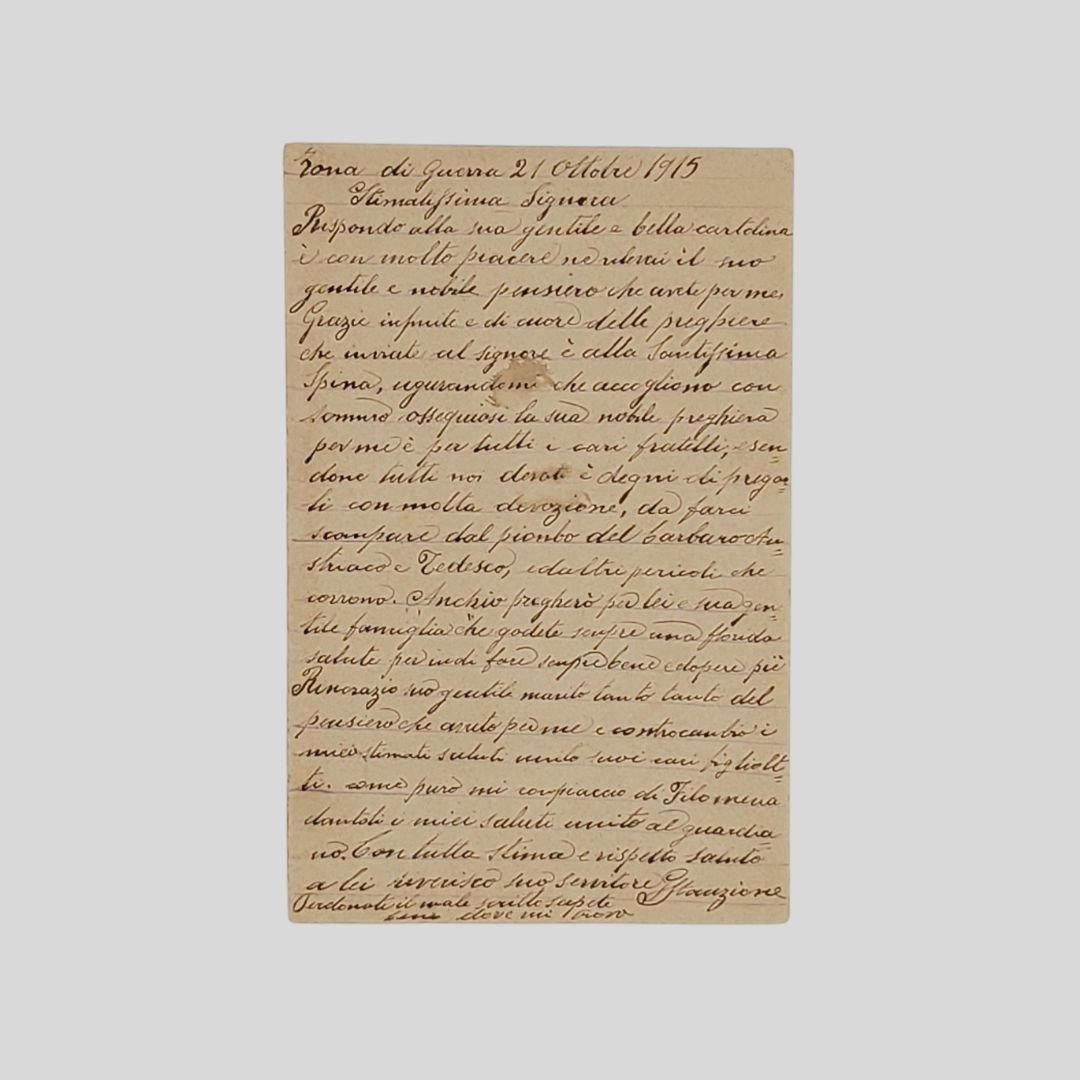 Zona di Guerra 21 Ottobre 1915
Stimatissima Signora
Rispondo alla sua gentile e bella cartolina
è con molto piacere ne rilevai il suo
gentile e nobile pensiero che avete per me,
Grazie infinite e di cuore delle preghiere
che inviate al Signore è alla Santissima
Spina, ugurandomi che accogliono con
ossequiosi la sua nobile preghiera
per me è per tutti i cari fratelli, esen=
done tutti noi devoti è degni di pregar=
li con molta devozione, da farci
scanpare dal pionbo del barbaro Au=
striaco e Tedesco, ed altri pericoli che
corrono. Anchio pregherò per lei e sua gen=
tile famiglia che godete senpre una florida
salute per indi fare senpre bene ed opere pie
Rincrazio suo gentile marito tanto tanto del
pensiero che avuto per me e contracanbio i
miei stimati saluti unito suoi cari figliolet=
ti. come puro mi conpiaccio di Filomena
dantoli i miei saluti unito al guardia=
no. Con tutta stima e rispetto saluto
a lei riverisco suo servitore
Perdonate il male scritto sapete
bene dove mi trovo